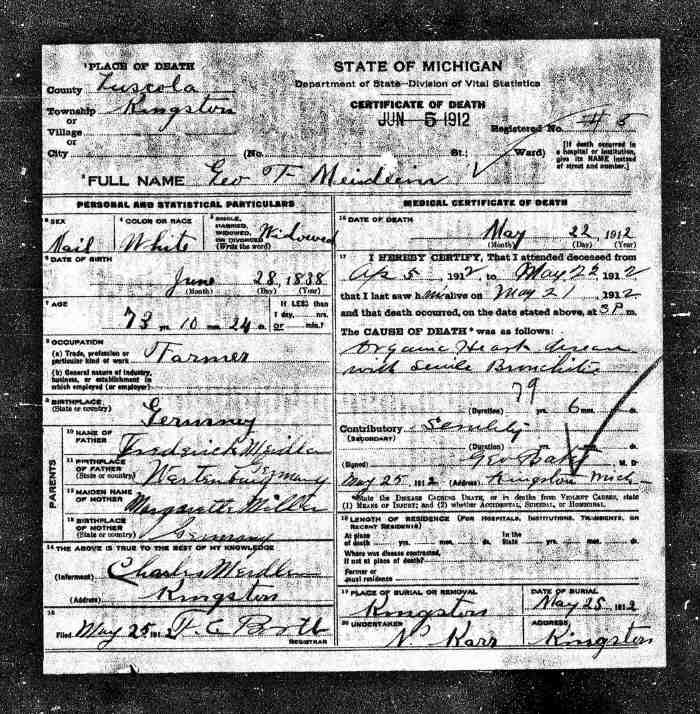 ¹PLACE OF DEATH
County Tuscola
Township Kingston
or
Village
or
City (No. St.; Ward)
STATE OF MICHIGAN
Department of State—Division of Vital Statistics
CERTIFICATE OF DEATH
JUN 5 1912
Registered No. # 5
[If death occurred in
a hospital or institution,
give its NAME instead
of street and number.]
²FULL NAME Geo F Meidlein
PERSONAL AND STATISTICAL PARTICULARS
³ SEX
Mail
⁴ COLOR OR RACE
White
⁵ SINGLE,
MARRIED,
WIDOWED,
OR DIVORCED
(Write the word)
Widowed
⁶ DATE OF BIRTH
June 28, 1838
(Month) (Day) (Year)
⁷ AGE
73 yrs. 10 mos. 24 ds.
If LESS than
1 day, hrs.
or min.?
⁸ OCCUPATION
(a) Trade, profession or
particular kind of work Farmer
(b) General nature of industry,
business, or establishment in
which employed (or employer)
⁹ BIRTHPLACE
(State or country)
Germany
PARENTS
¹⁰ NAME OF
FATHER
Frederick Meidlein
¹¹ BIRTHPLACE
OF FATHER
(State or country)
Germany
¹² MAIDEN NAME
OF MOTHER
Margarette Miller
¹³ BIRTHPLACE
OF MOTHER
(State or country)
Germany
¹⁴ THE ABOVE IS TRUE TO THE BEST OF MY KNOWLEDGE
(Informant) Charles Meidlein
(Address) Kingston
¹⁵
Filed May 25 1912 F. C.
REGISTRAR
MEDICAL CERTIFICATE OF DEATH
¹⁶ DATE OF DEATH
May 22, 1912
(Month) (Day) (Year)
¹⁷ I HEREBY CERTIFY, That I attended deceased from
Ap 5, 1912, to May 22 1912
that I last saw him alive on May 21, 1912
and that death occurred, on the date stated above, at 3 P m.
The CAUSE OF DEATH* was as follows:
Organic Heart disease
with Senile Bronchitis
79
(Duration) yrs. 6 mos. ds.
Contributory Senility
(SECONDARY)
(Duration) yrs. mos. ds.
(Signed) Geo Bates M. D.
May 25, 1912 (Address) Kingston Mich
*State the DISEASE CAUSING DEATH, or in deaths from VIOLENT CAUSES, state
(1) MEANS OF INJURY; and (2) whether ACCIDENTAL, SUICIDAL, or HOMICIDAL.
¹⁸ LENGTH OF RESIDENCE (FOR HOSPITALS, INSTITUTIONS, TRANSIENTS, OR
RECENT RESIDENTS)
At place
of death yrs. mos. ds.
In the
State yrs. mos. ds.
Where was disease contracted,
if not at place of death?
Former or
usual residence
¹⁹ PLACE OF BURIAL OR REMOVAL
Kingston
DATE OF BURIAL
May 25, 1912
²⁰ UNDERTAKER
N. Karr
ADDRESS
Kingston